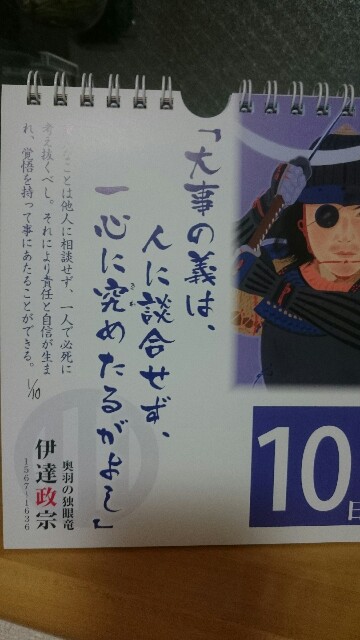 「大事の義は、
人に談合せず、
一心に究めたるがよし」
きわ
なことは他人に相談せず、一人で必死に
考え抜くべし。それにより責任と自信が生ま
れ、覚悟を持って事にあたることができる。
1/10
奥羽の独眼竜
伊達政宗
1567〜1636
10
日